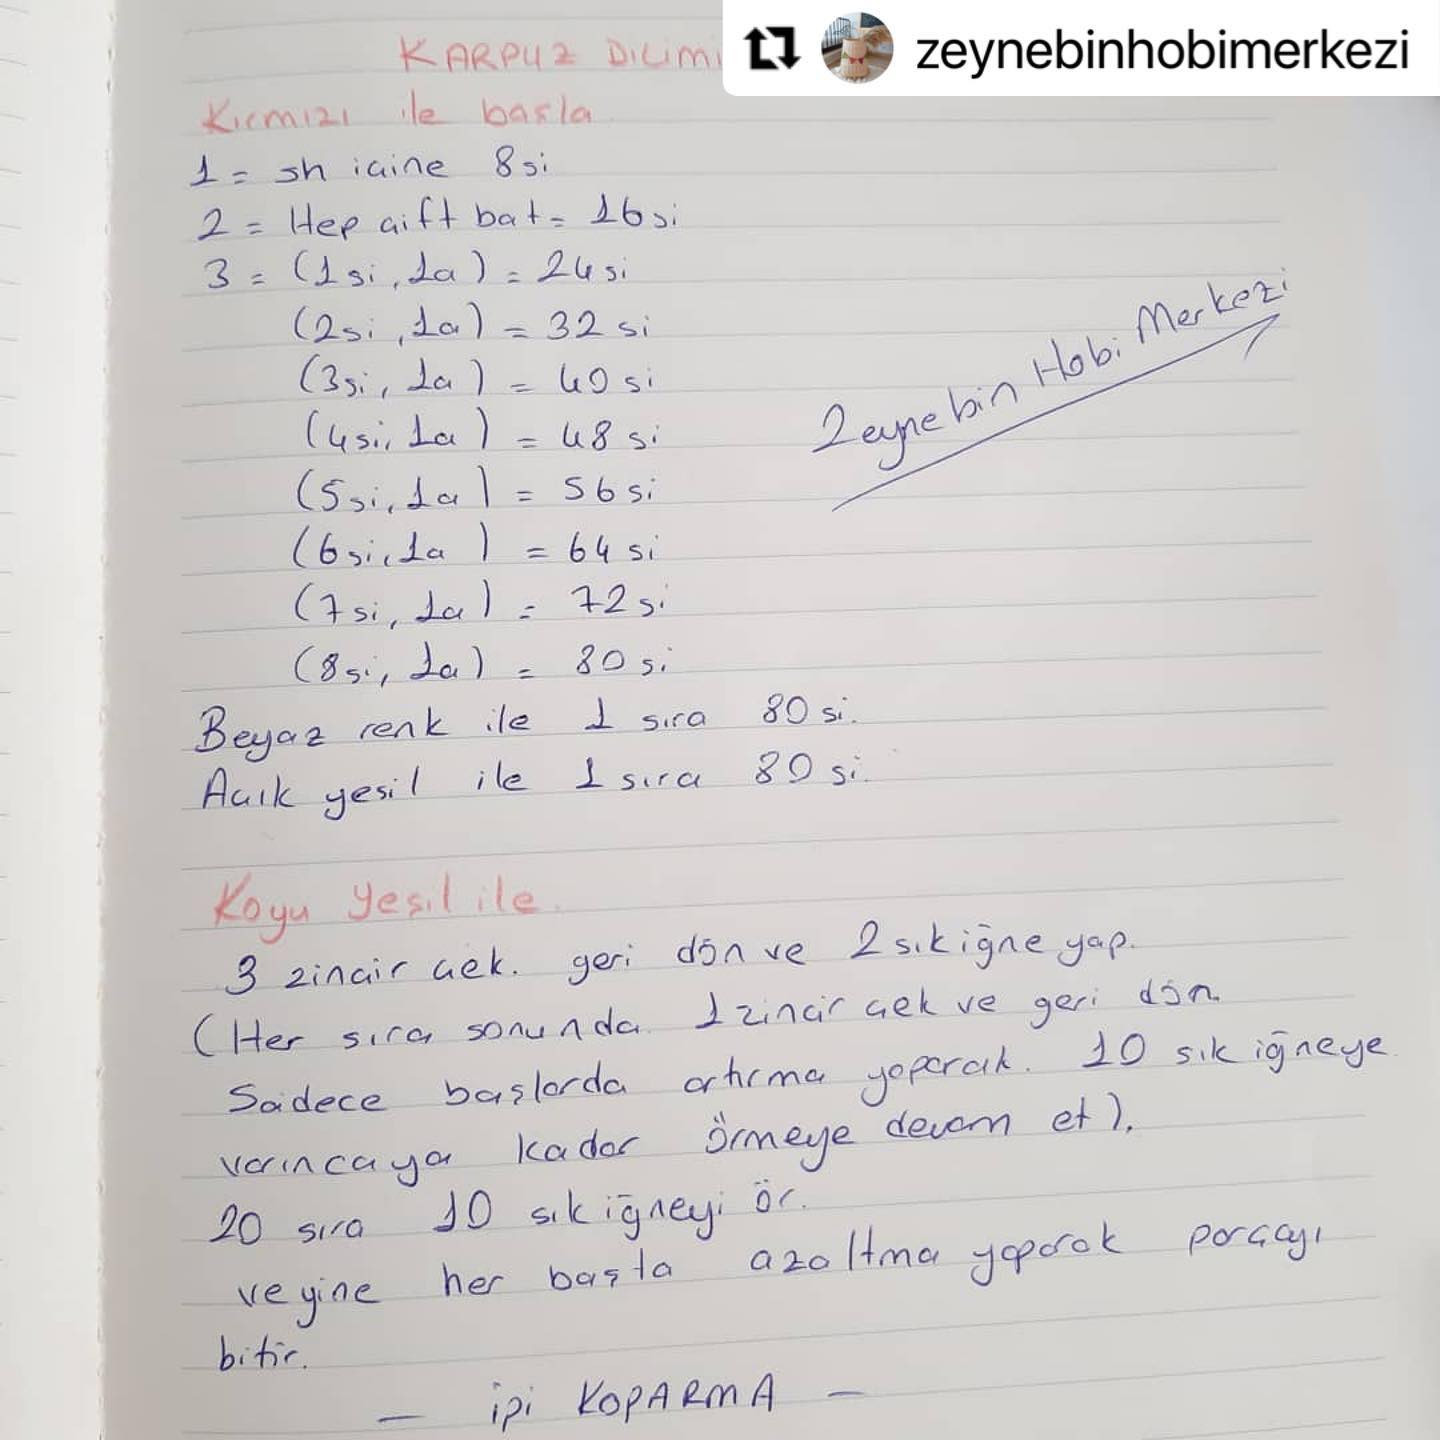 KARPUZ DILIMI
zeynebinhobimerkezi
Kırmızı ile basla
1 = sh icine 8 si
2 = Hep cift bat = 16 si
3 = (1 si, 1a) = 24 si
(2si, 1a) = 32 si
(3si, 1a) = 40 si
(4si, 1a) = 48 si
(5si, 1a) = 56 si
(6si, 1a) = 64 si
(7si, 1a) = 72 si
(8si, 1a) = 80 si
Zeynebin Hobi Merkezi
Beyaz renk ile 1 sıra 80 si.
Acık yesil ile 1 sıra 80 si.
Koyu yesil ile.
3 zincir cek. geri dön ve 2 sık iğne yap.
(Her sıra sonunda 1 zincir cek ve geri dön.
Sadece başlarda artırma yaparak. 10 sık iğneye
varıncaya kadar örmeye devam et).
20 sıra 10 sık iğneyi ör.
ve yine her başta azaltma yaparak parçayı
bitir.
— ipi KOPARMA —